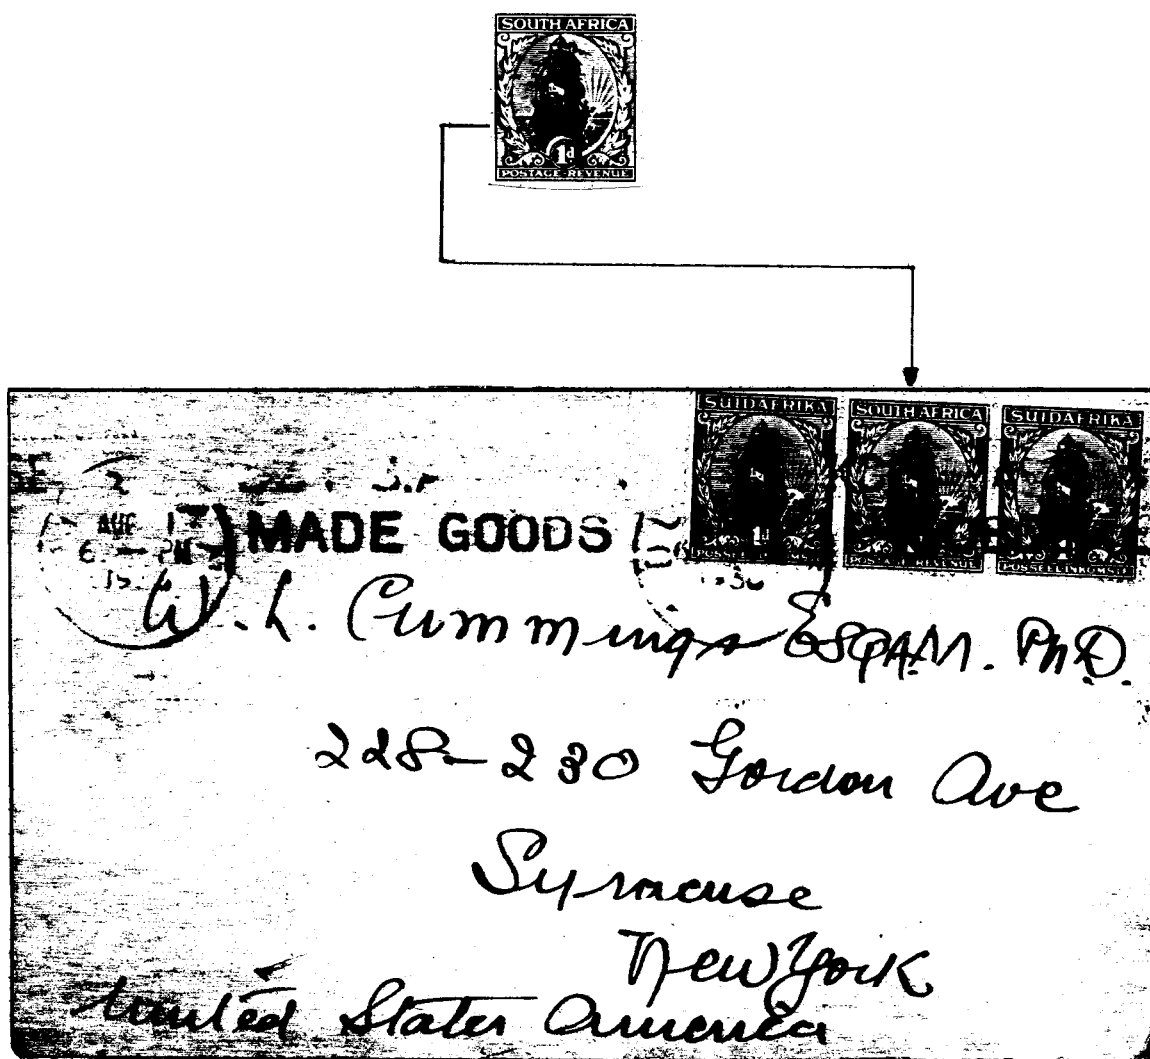 SOUTH AFRICA
1d
POSTAGE REVENUE
SUIDAFRIKA SOUTH AFRICA SUIDAFRIKA
1d
POSSEEL INKOMSTE
AUG 17
6 — PM
MADE GOODS
W. L. Cummings Esq A.M. Ph.D.
228-230 Gordon Ave
Syracuse
New York
United States America